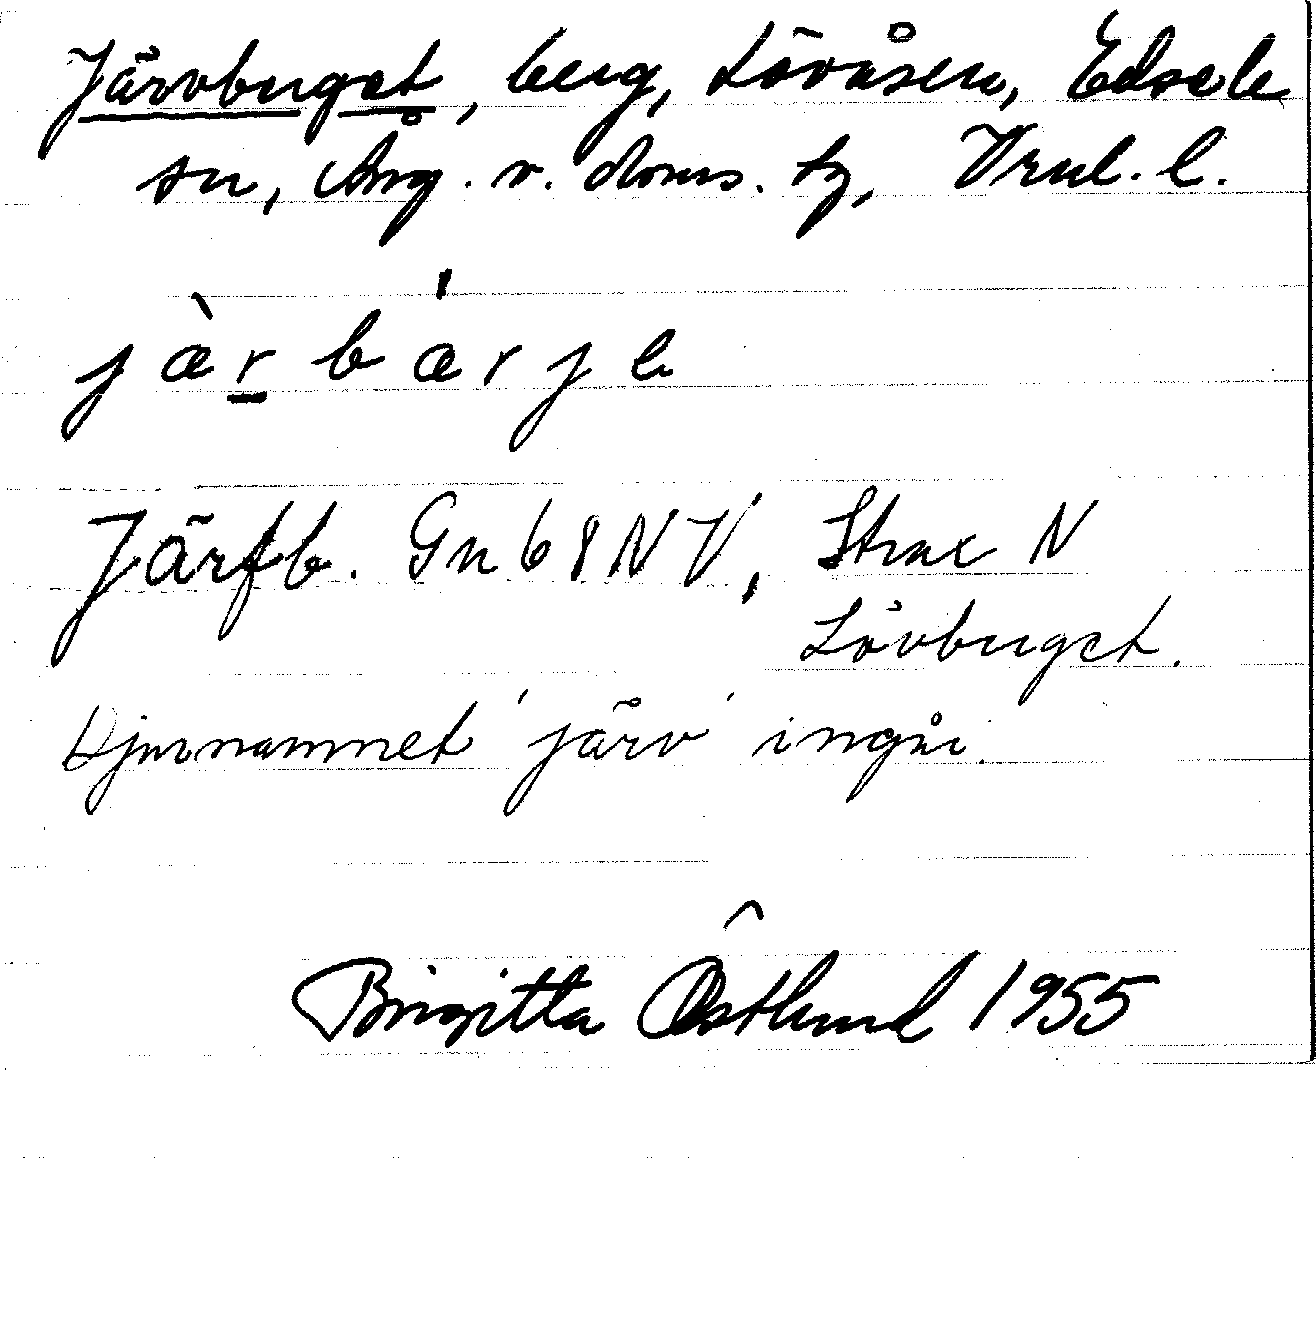 Järvberget, berg, Lövåsen, Edsele
sn, Ång. v. doms. tg, Vnl. l.
jæ̀rbǽrje
Järfb. Gn 68 NV, Strax N
Lövberget.
Djurnamnet 'järv' ingår.
Birgitta Östlund 1955